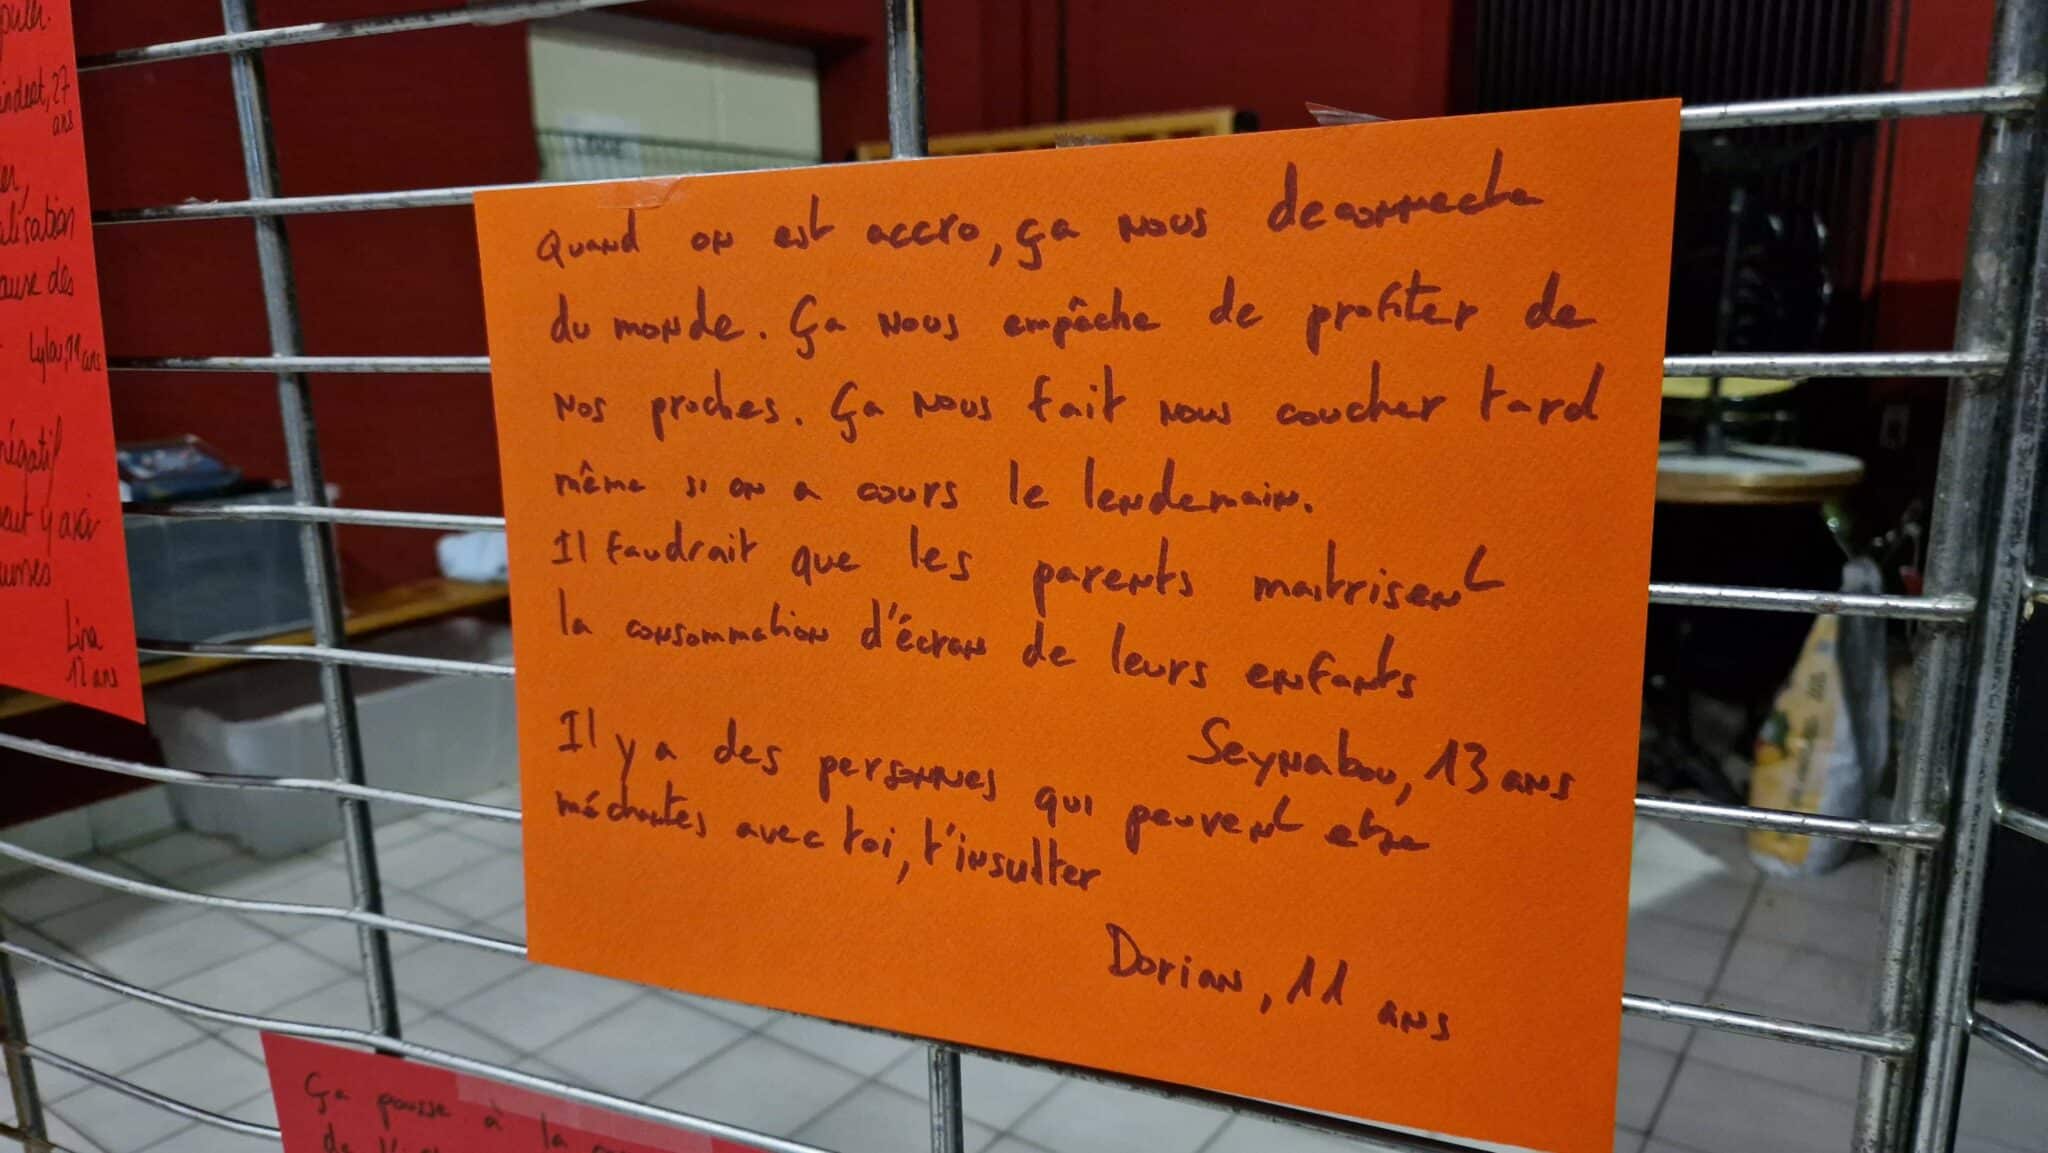 27
ans
alisation
ause des
Lylou, 11 ans
négatif
peut y avoir
Lina
12 ans
Quand on est accro, ça nous deconnecte
du monde. Ça nous empêche de profiter de
nos proches. Ça nous fait nous coucher tard
même si on a cours le lendemain.
Il faudrait que les parents maitrisent
la consommation d'écran de leurs enfants
Seynabou, 13 ans
Il y a des personnes qui peuvent etre
méchantes avec toi, t'insulter
Dorian, 11 ans
Ça pousse à la